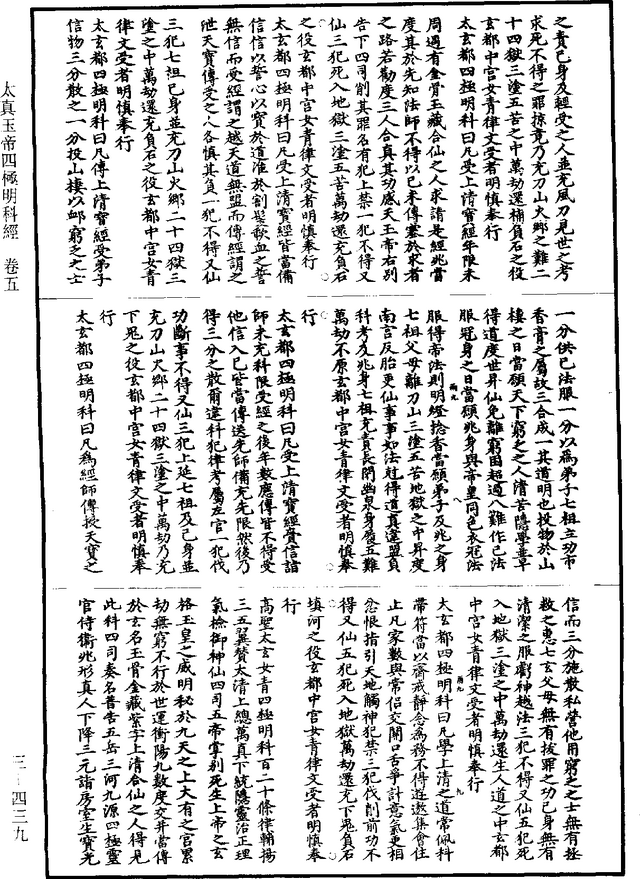 太真玉帝四極明科經 卷五
三—四三九
之責已身及輕受之人並充風刀見世之考
求死不得之罪掠竟乃充刀山火鄉之難二
十四獄三塗五苦之中萬劫還補負石之役
玄都中宮女青律文受者明慎奉行
太玄都四極明科曰凡受上清寶經年限未
周遇有金骨玉藏合仙之人求請是經兆當
度其於先知法師不得以已未傳塞於求者
之路若勸度三人合真其功感天玉帝右別
告下四司削其罪名有犯上禁一犯不得又
仙三犯死入地獄三塗五苦萬劫還充負石
之役玄都中宮女青律文受者明慎奉行
太玄都四極明科曰凡受上清寶經皆當備
信信以誓心以寶於道准於割髮歃血之誓
無信而受經謂之越天道無盟而傳經謂之
泄天寶傳受之人各慎其負一犯不得又仙
三犯七祖已身並充刀山火鄉二十四獄三
塗之中萬劫還充負石之役玄都中宮女青
律文受者明慎奉行
太玄都四極明科曰凡傳上清寶經受弟子
信物三分散之一分投山棲以卹窮乏之士
一分供已法服一分以為弟子七祖立功市
香膏之屬故三合成一其道明也投物於山
棲之日當願天下窮乏之人清苦隱學並早
得道度世昇仙免離窮困超過八難作已法
服冠身之日當願兆身與帝皇同色衣冠法
服得帝法則明經捻香當願弟子及兆之身
七祖父母離刀山三塗五苦地獄之中昇度
南宮反胎更仙事事如法尅得道真違盟負
科考及兆身七祖充責長閉幽泉身履五難
萬劫不原玄都中宮女青律文受者明慎奉
行
太玄都四極明科曰凡受上清寶經賫信詣
師未充科限受經之後年數應傳皆不得受
他信入已皆當傳送先師備充先限然後乃
得三分之散前違科犯律考屬左官一犯伐
功斷事不得又仙三犯上延七祖及已身並
充刀山火鄉二十四獄三塗之中萬劫乃充
下鬼之役玄都中宮女青律文受者明慎奉
行
太玄都四極明科曰凡為經師傳授天寶之
信而三分施散私營他用窮乏之士無有拯
救之惠七玄父母無有拔罪之功已身無有
清潔之服虧神越法三犯不得又仙五犯死
入地獄三塗之中萬劫還生人道之中玄都
中宮女青律文受者明慎奉行
太玄都四極明科曰凡學上清之道常佩科
帶符當以齋戒靜念為務不得遊遨集會住
止凡家數與常侶交關口舌爭計意氣更相
忿恨指引天地觸神犯禁三犯伐削前功不
得又仙五犯死入地獄萬劫還充下鬼負石
填河之役玄都中宮女青律文受者明慎奉
行
高聖太玄女青四極明科百二十條律輔揚
三五翼贊太清上總萬真下統隱靈治正理
氣檢御神仙四司五帝掌別死生上帝之玄
格玉皇之威明秘於九天之上大有之宮累
劫無窮不行於世運衝陽九數度交并當傳
於玄名玉骨金藏紫字上清合仙之人得見
此科四司奏名普告五岳三河九源四極靈
官侍衛兆形真人下降三元詣房室生寶光